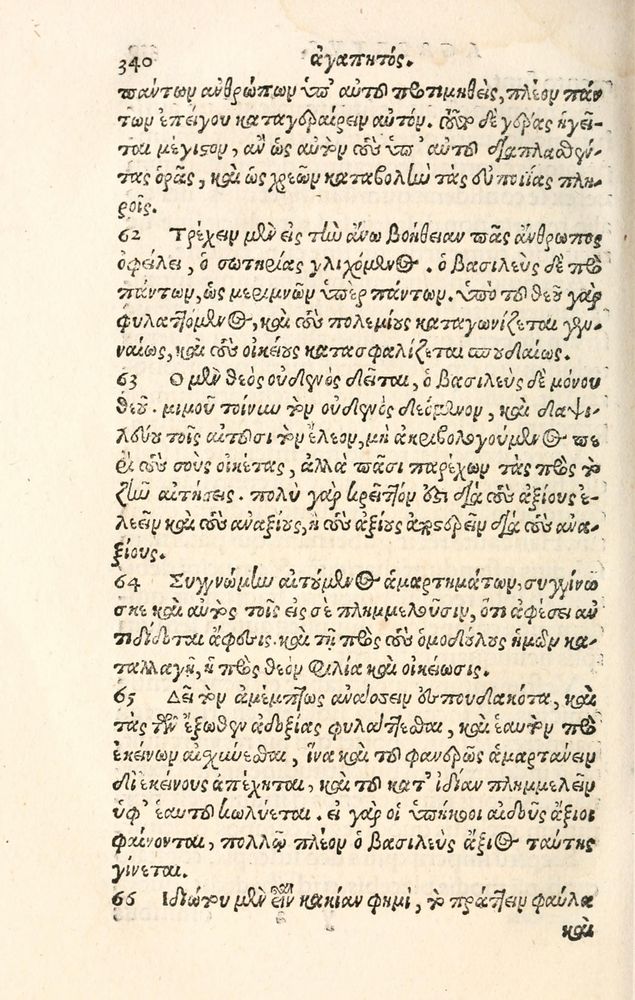 340 ἀγαπητός.
πάντων ἀνθρώπων ὑπ' αὐτοῦ προτιμηθεὶς, πλέον πάν
των ἐπείγου καταγεραίρειν αὐτόν. τοῦτο δὲ γέρας ἡγεῖ-
ται μέγιστον, ἂν ὡς αὐτὸν τοὺς ὑπ' αὐτοῦ διαπλασθέν-
τας ὁρᾷς, καὶ ὡς χρεῶν καταβολὴν τὰς εὐποιΐας πλη-
ροῖς.
62 Τρέχειν μὲν εἰς τὴν ἄνω βοήθειαν πᾶς ἄνθρωπος
ὀφείλει, ὁ σωτηρίας γλιχόμενος. ὁ βασιλεὺς δὲ πρὸ
πάντων, ὡς μεριμνῶν ὑπὲρ πάντων. ὑπὸ τοῦ θεοῦ γὰρ
φυλαττόμενος, καὶ τοὺς πολεμίους καταγωνίζεται γεν-
ναίως, καὶ τοὺς οἰκείους κατασφαλίζεται σπουδαίως.
63 Ο μὲν θεὸς οὐδενὸς δεῖται, ὁ βασιλεὺς δὲ μόνου
θεοῦ. μιμοῦ τοίνυν τὸν οὐδενὸς δεόμενον, καὶ δαψι-
λεύου τοῖς αἰτοῦσι τὸν ἔλεον, μὴ ἀκριβολογούμενος πε
ρὶ τοὺς σοὺς οἰκέτας, ἀλλὰ πᾶσι παρέχων τὰς πρὸς τὸ
ζῆν αἰτήσεις. πολὺ γὰρ κρεῖττόν ἐστι διὰ τοὺς ἀξίους ἐ-
λεεῖν καὶ τοὺς ἀναξίους, ἢ τοὺς ἀξίους ἀποστερεῖν διὰ τοὺς ἀνα-
ξίους.
64 Συγγνώμην αἰτούμενος ἁμαρτημάτων, συγγίνω
σκε καὶ αὐτὸς τοῖς εἰς σὲ πλημμελοῦσιν, ὅτι ἀφέσει αν
τιδίδοται ἄφεσις. καὶ τῇ πρὸς τοὺς ὁμοδούλους ἡμῶν κα-
ταλλαγῇ, ἡ πρὸς θεὸν φιλία καὶ οἰκείωσις.
65 Δεῖ τὸν ἀμέμπτως ἀνάσσειν ἐσπουδακότα, καὶ
τὰς τῶν ἔξωθεν ἀδοξίας φυλάττεσθαι, καὶ ἑαυτὸν πρὸ
ἐκείνων αἰσχύνεσθαι, ἵνα καὶ τοῦ φανερῶς ἁμαρτάνειν
δι' ἐκείνους ἀπέχηται, καὶ τοῦ κατ' ἰδίαν πλημμελεῖν
ὑφ' ἑαυτοῦ κωλύεται. εἰ γὰρ οἱ ὑπήκοοι αἰδοῦς ἄξιοι
φαίνονται, πολλῷ πλέον ὁ βασιλεὺς ἄξιος ταύτης
γίνεται.
66 Ιδιώτου μὲν εἶναι κακίαν φημὶ, τὸ πράττειν φαῦλα
καὶ